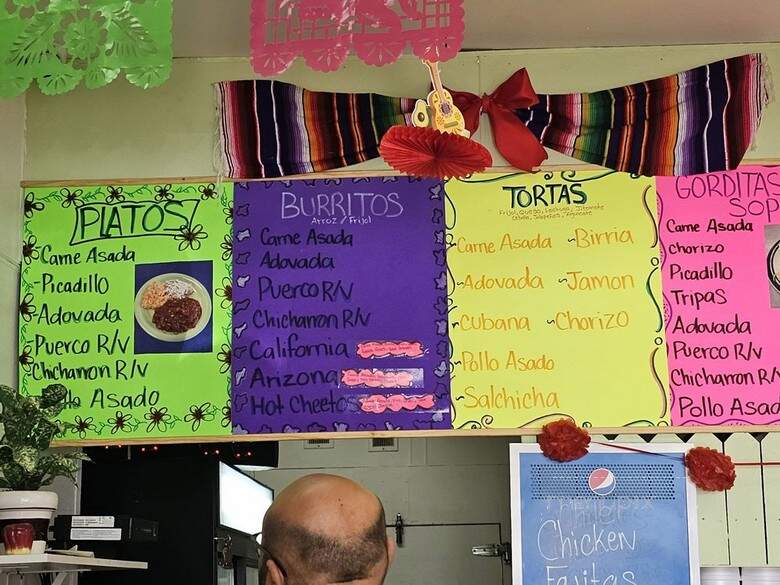 PLATOS
-Carne Asada
-Picadillo
-Adovada
-Puerco R/V
-Chicharron R/V
Asado
BURRITOS
Arroz / Frijol
Carne Asada
Adovada
Puerco R/V
Chicharron R/V
California
Arizona
Hot Cheetos
TORTAS
Frijol, Queso, Lechuga,
-Carne Asada -Birria
-Adovada -Jamon
-Cubana -Chorizo
-Pollo Asado
-Salchicha
GORDITAS
SOP
Carne Asada
Chorizo
Picadillo
Tripas
Adovada
Puerco R/V
Chicharron R/V
Pollo Asad
Chicken
Fajitas